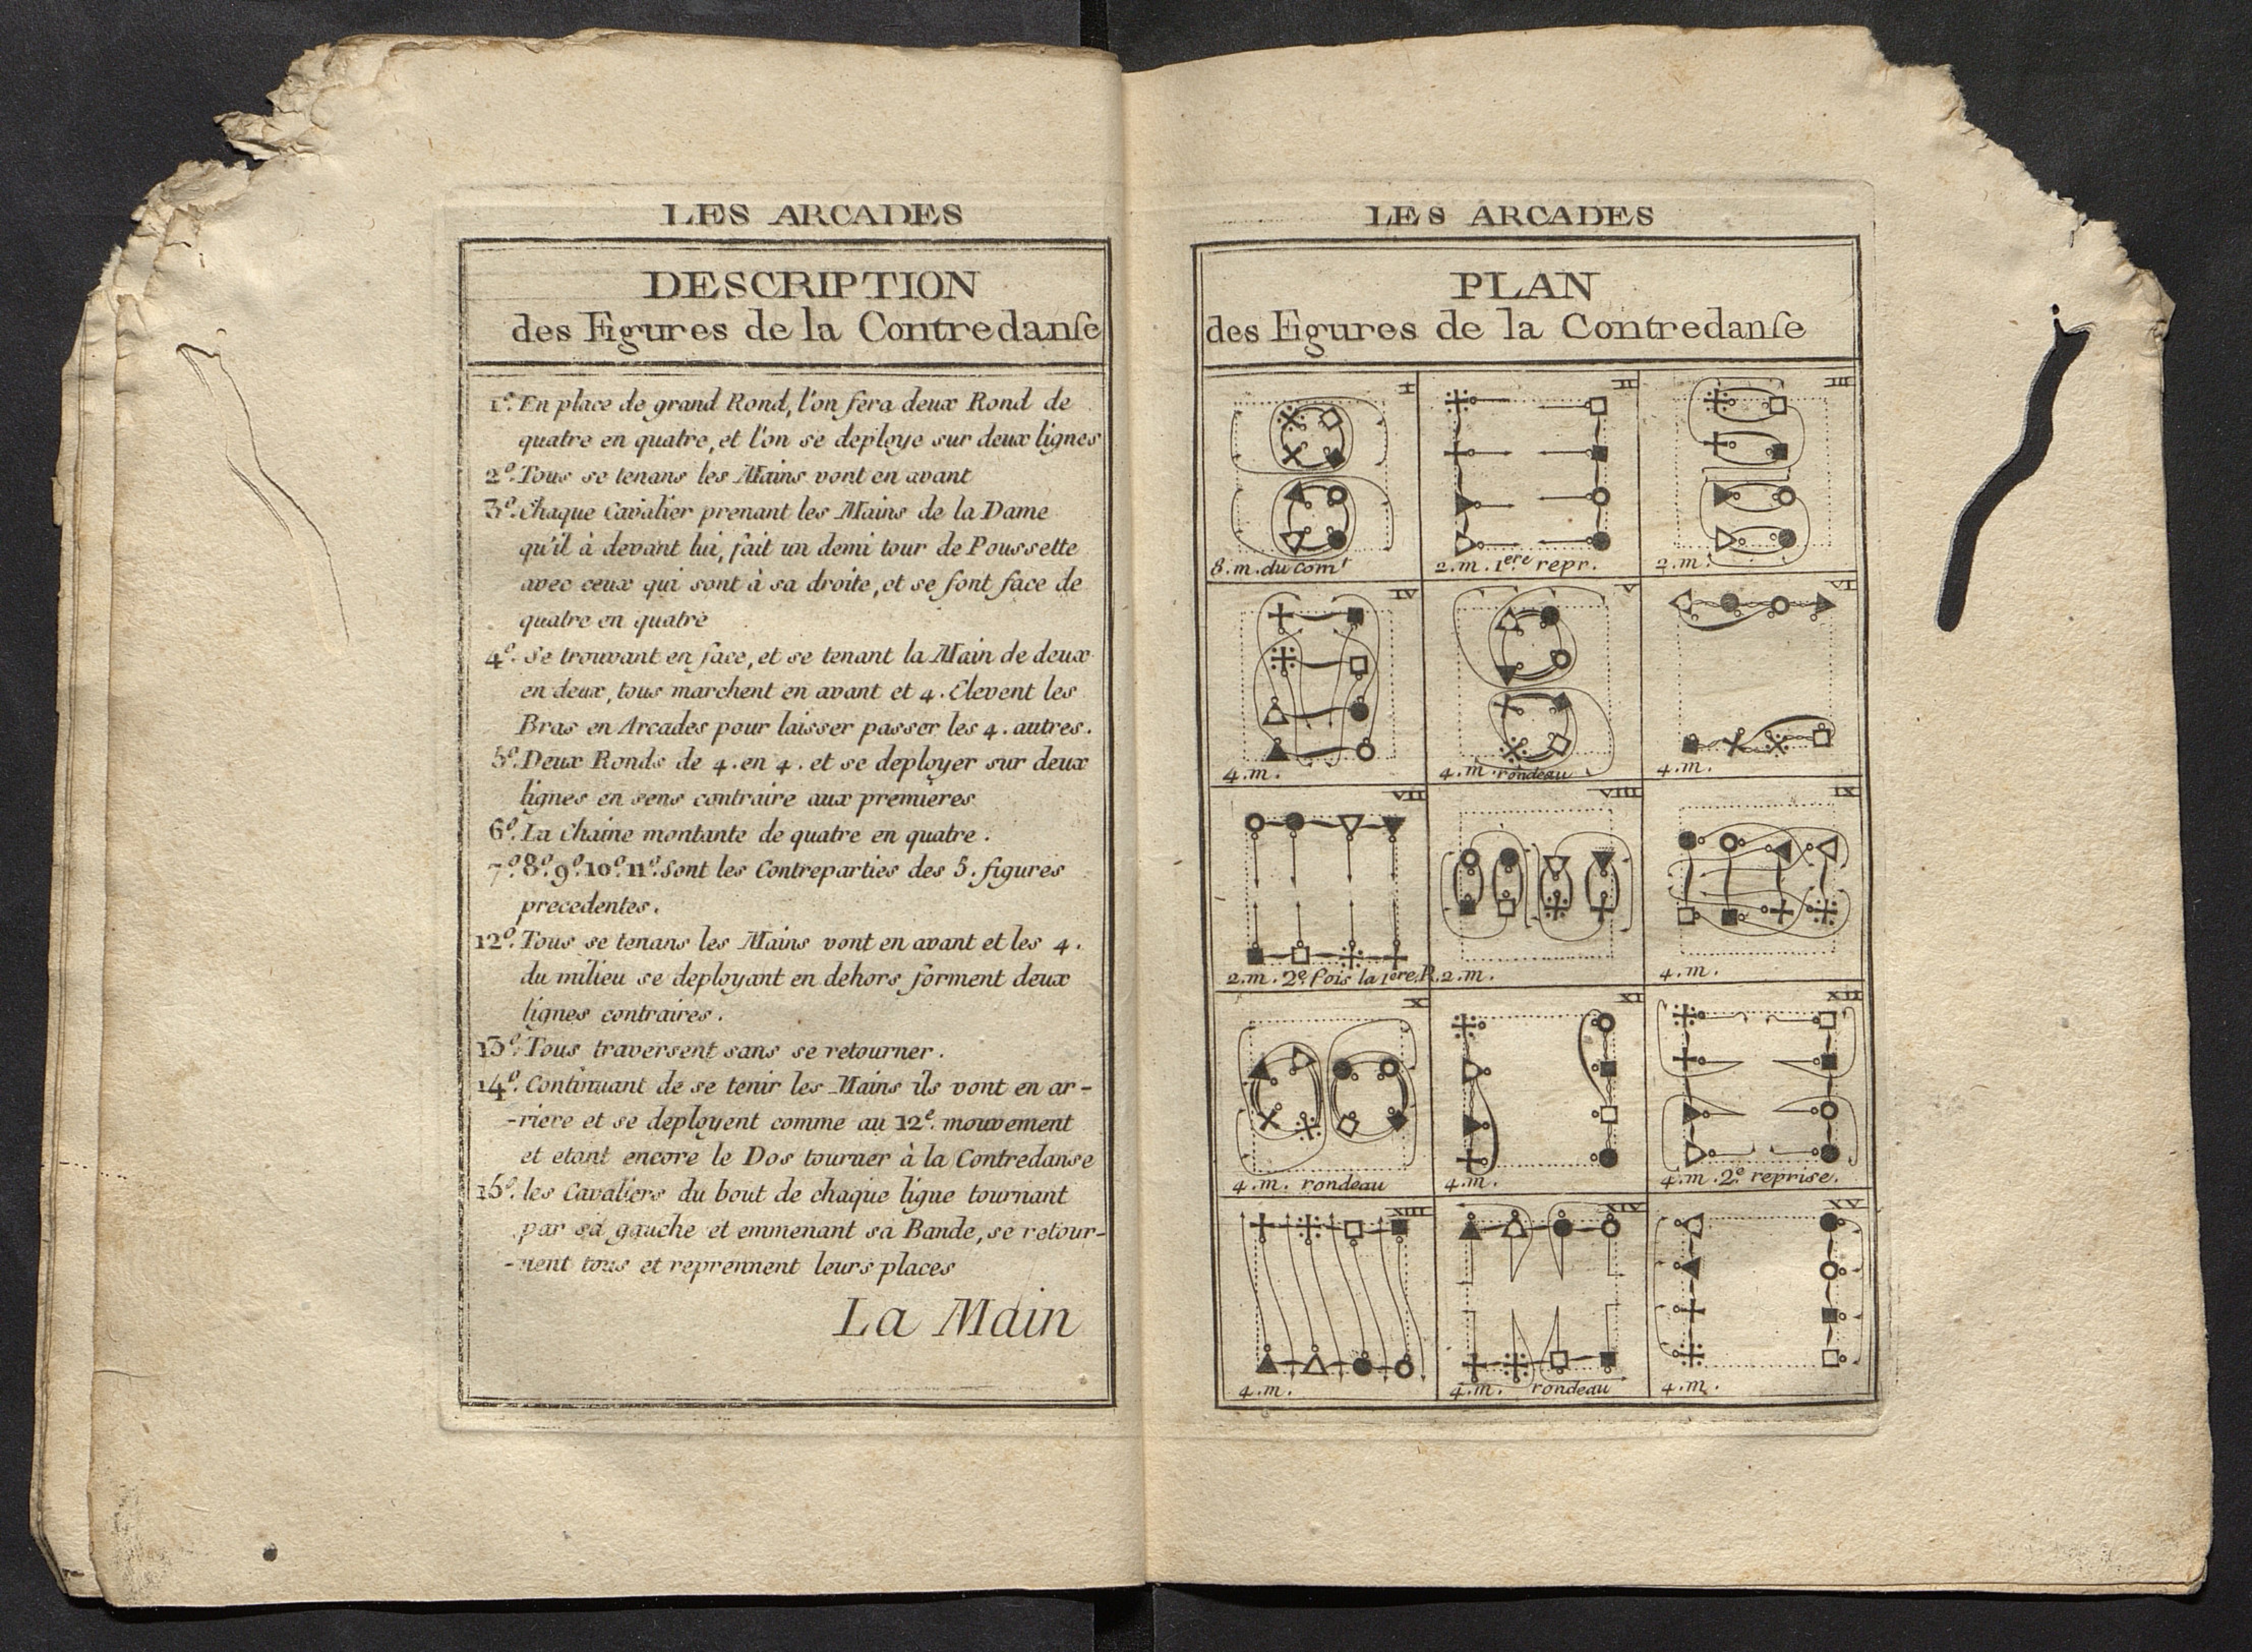 LES ARCADES
DESCRIPTION
des Figures de la Contredanſe
1.º En place de grand Rond, l'on fera deux Rond de
quatre en quatre, et l'on se deploye sur deux lignes
2.º Tous se tenans les Mains vont en avant
3.º Chaque Cavalier prenant les Mains de la Dame
qu'il à devant lui, fait un demi tour de Poussette
avec ceux qui sont à sa droite, et se font face de
quatre en quatre
4.º Se trouvant en face, et se tenant la Main de deux
en deux, tous marchent en avant et 4. Elevent les
Bras en Arcades pour laisser passer les 4. autres.
5.º Deux Ronds de 4. en 4. et se deployer sur deux
lignes en sens contraire aux premieres
6.º La Chaine montante de quatre en quatre.
7.º 8.º 9.º 10.º 11.º Sont les Contreparties des 5. figures
precedentes.
12.º Tous se tenans les Mains vont en avant et les 4.
du milieu se deployant en dehors forment deux
lignes contraires.
13.º Tous traversent sans se retourner.
14.º Continuant de se tenir les Mains ils vont en ar-
-riere et se deployent comme au 12.e mouvement
et etant encore le Dos tourner à la Contredanse
15.º les Cavaliers du bout de chaque ligne tournant
par sa gauche et emmenant sa Bande, se retour-
-nent tous et reprennent leurs places
La Main
LES ARCADES
PLAN
des Figures de la Contredanſe
I
8. m. du comt
II
2. m. 1ere repr.
III
2. m.
IV
4. m.
V
4. m. rondeau
VI
4. m.
VII
2. m. 2e. fois la 1ere. R.
VIII
2. m.
IX
4. m.
X
4. m. rondeau
XI
4. m.
XII
4. m. 2e. reprise.
XIII
4. m.
XIV
4. m. rondeau
XV
4. m.